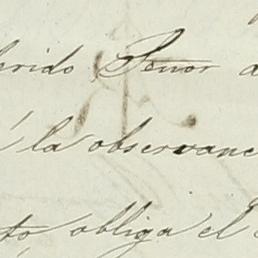 erido Señor d
á la observanc
to obliga el